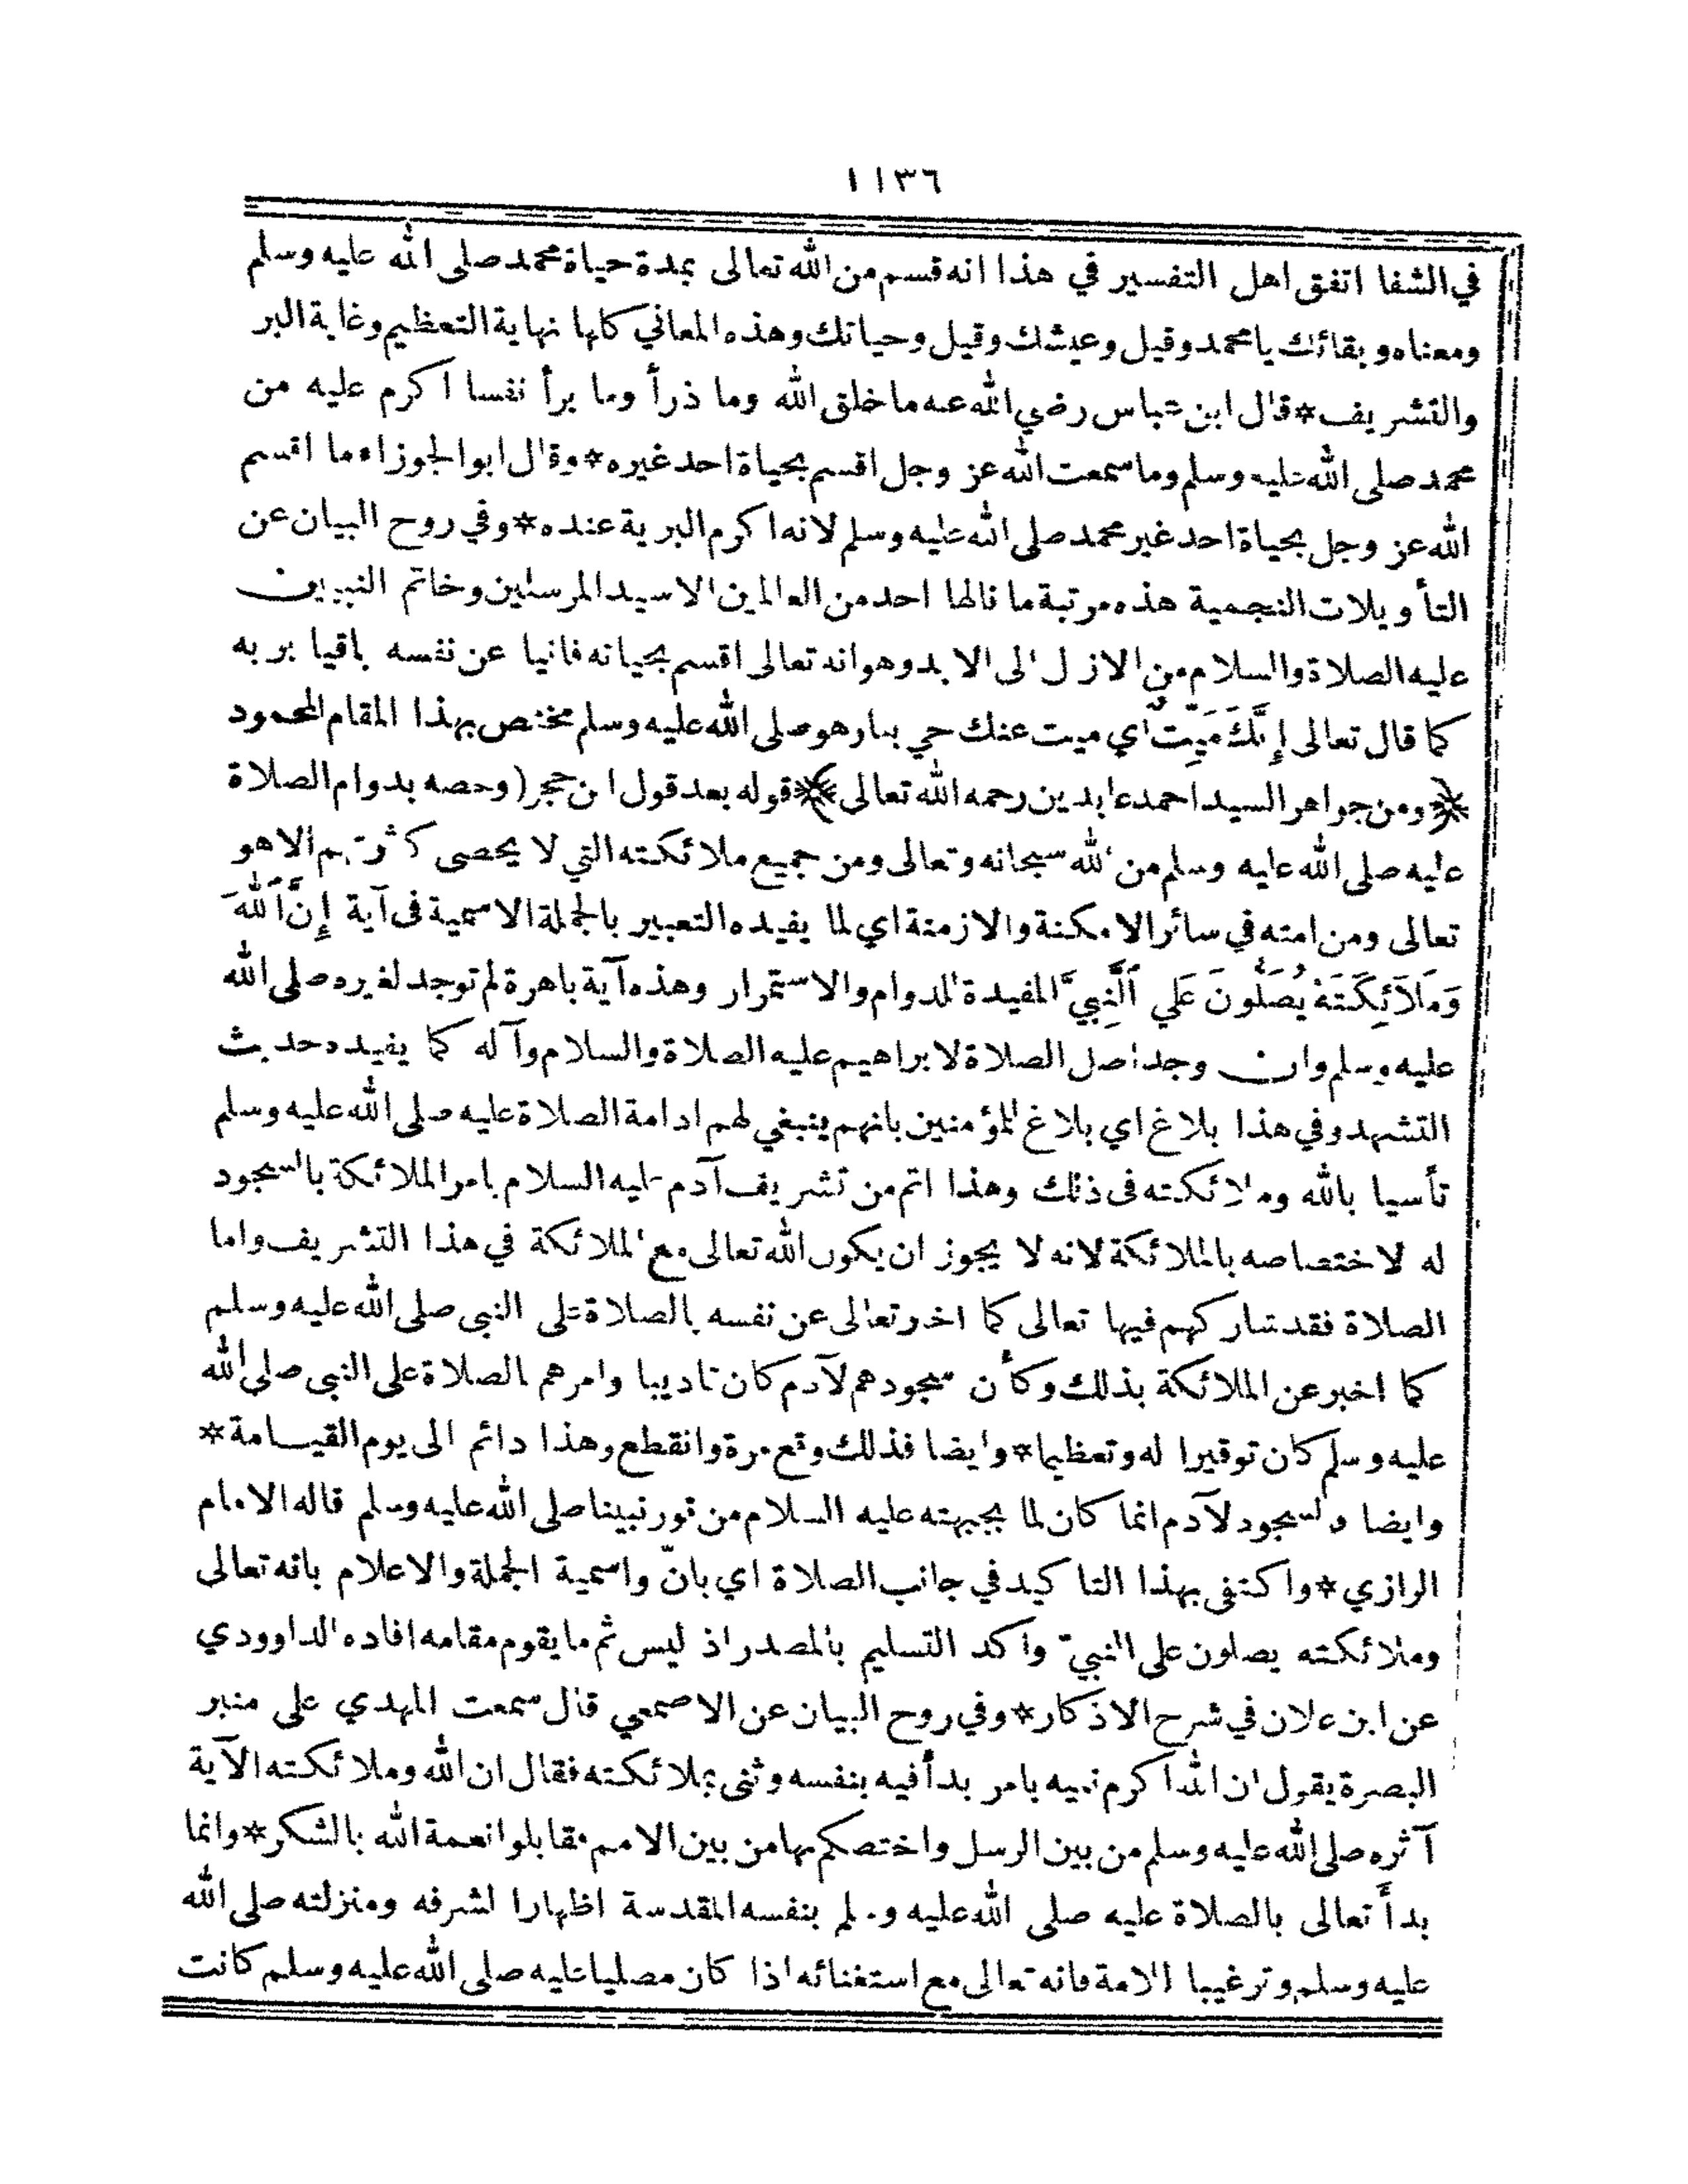 ١١٣٦
في الشفا اتفق اهل التفسير في هذا انه قسم من الله تعالى بمدة حياة محمد صلى الله عليه وسلم
ومعناه وبقائك يا محمد وقيل وعيشك وقيل وحياتك وهذه المعاني كلها نهاية التعظيم وغاية البر
والتشريف * قال ابن عباس رضي الله عنه ما خلق الله وما ذرأ وما برأ نفسا اكرم عليه من
محمد صلى الله عليه وسلم وما سمعت الله عز وجل اقسم بحياة احد غيره * وقال ابو الجوزاء ما اقسم
الله عز وجل بحياة احد غير محمد صلى الله عليه وسلم لانه اكرم البرية عنده * وفي روح البيان عن
التأويلات النجمية هذه مرتبة ما نالها احد من العالمين الا سيد المرسلين وخاتم النبيين
عليه الصلاة والسلام من الازل الى الابد وهو انه تعالى اقسم بحياته فانيا عن نفسه باقيا بربه
كما قال تعالى إِنَّكَ مَيِّتٌ اي ميت عنك حي بنا وهو صلى الله عليه وسلم مختص بهذا المقام المحمود
﴿ومن جواهر السيد احمد عابدين رحمه الله تعالى﴾ قوله بعد قول ابن حجر (وخصه بدوام الصلاة
عليه صلى الله عليه وسلم من الله سبحانه وتعالى ومن جميع ملائكته التي لا يحصى كثرتهم الا هو
تعالى ومن امته في سائر الامكنة والازمنة اي لما يفيده التعبير بالجملة الاسمية في آية إِنَّ ٱللهَ
وَمَلَائِكَتَهُ يُصَلُّونَ عَلَي ٱلنَّبِيِّ المفيدة للدوام والاستمرار وهذه آية باهرة لم توجد لغيره صلى الله
عليه وسلم وان وجد اصل الصلاة لابراهيم عليه الصلاة والسلام وآله كما يفيده حديث
التشهد وفي هذا بلاغ اي بلاغ للمؤمنين بانهم ينبغي لهم ادامة الصلاة عليه صلى الله عليه وسلم
تأسيا بالله وملائكته في ذلك وهذا اتم من تشريف آدم عليه السلام بامر الملائكة بالسجود
له لاختصاصه بالملائكة لانه لا يجوز ان يكون الله تعالى مع الملائكة في هذا التشريف واما
الصلاة فقد شاركهم فيها تعالى كما اخبر تعالى عن نفسه بالصلاة على النبي صلى الله عليه وسلم
كما اخبر عن الملائكة بذلك وكأن سجودهم لآدم كان تاديبا وامرهم بالصلاة على النبي صلى الله
عليه وسلم كان توقيرا له وتعظيما * وايضا فذلك وقع مرة وانقطع وهذا دائم الى يوم القيامة *
وايضا فالسجود لآدم انما كان لما بجبهته عليه السلام من نور نبينا صلى الله عليه وسلم قاله الامام
الرازي * واكتفى بهذا التاكيد في جانب الصلاة اي بانّ واسمية الجملة والاعلام بانه تعالى
وملائكته يصلون على النبيّ واكد التسليم بالمصدر اذ ليس ثم ما يقوم مقامه افاده الداوودي
عن ابن علان في شرح الاذكار * وفي روح البيان عن الاصمعي قال سمعت المهدي على منبر
البصرة يقول ان الله اكرم نبيه بامر بدأ فيه بنفسه وثنى بملائكته فقال ان الله وملائكته الآية
آثره صلى الله عليه وسلم من بين الرسل واختصكم بها من بين الامم فقابلوا نعمة الله بالشكر * وانما
بدأ تعالى بالصلاة عليه صلى الله عليه وسلم بنفسه المقدسة اظهارا لشرفه ومنزلته صلى الله
عليه وسلم وترغيبا للامة فانه تعالى مع استغنائه اذا كان مصليا عليه صلى الله عليه وسلم كانت